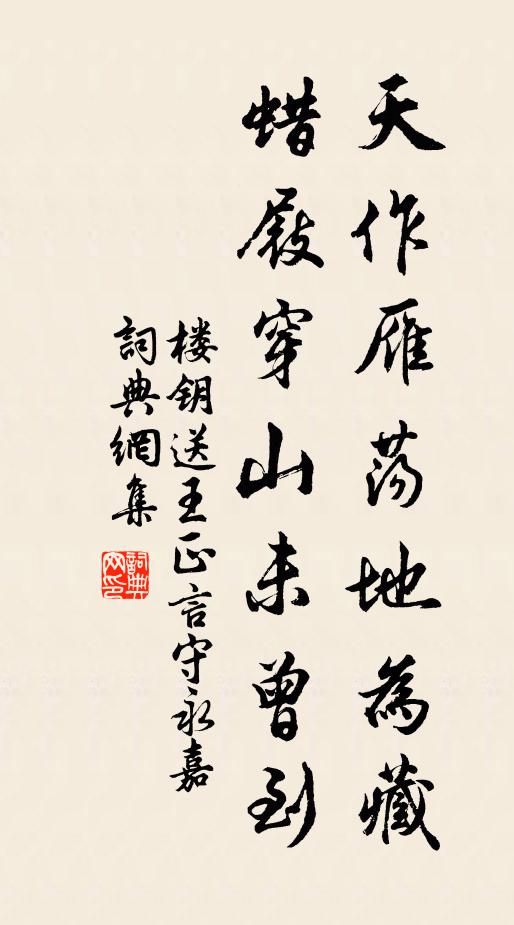 天作雁荡地為藏
蜡屐穿山未曾到
楼钥送王正言守永嘉
詞典網集
詞典网印